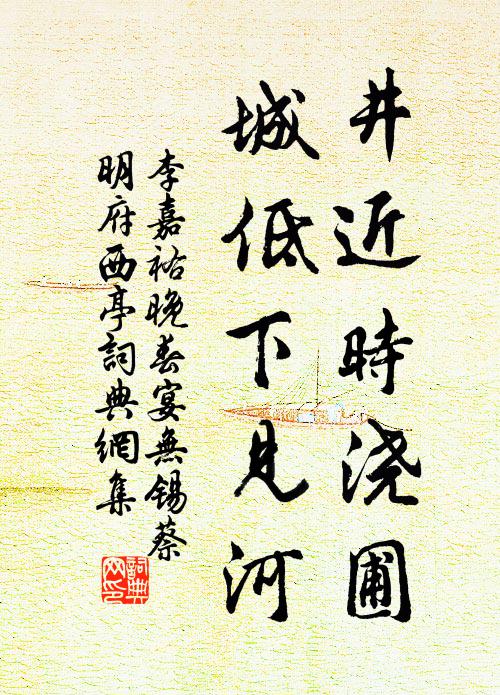 井近時浇圃
城低下見河
李嘉祐晚春宴無錫蔡
明府西亭詞典網集
詞典网印